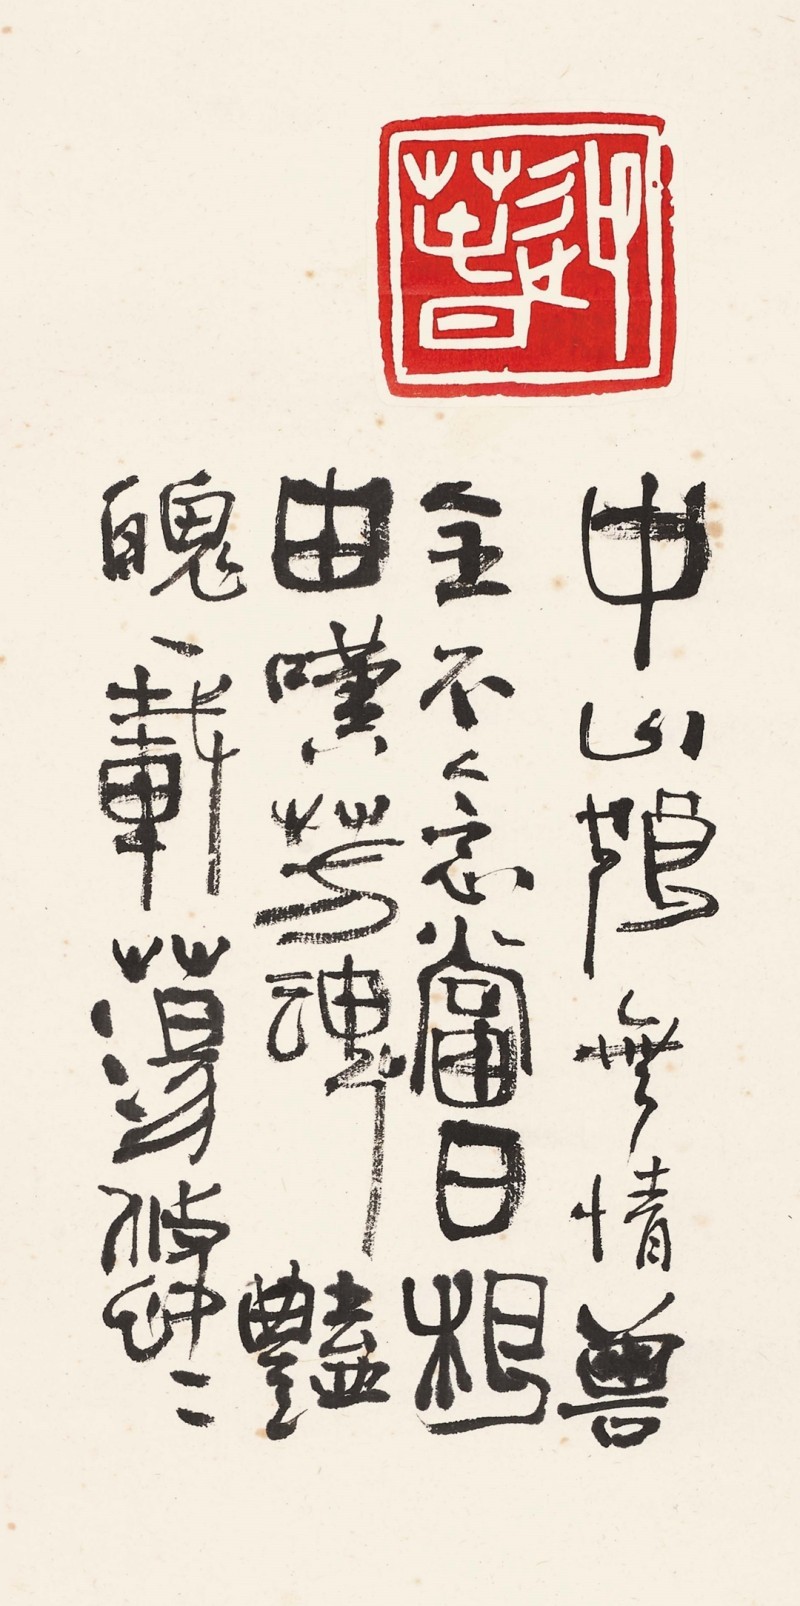 迎春
中山狼無情兽
全不念當日根
由嘆芳魂豔
魄一載蕩悠〻